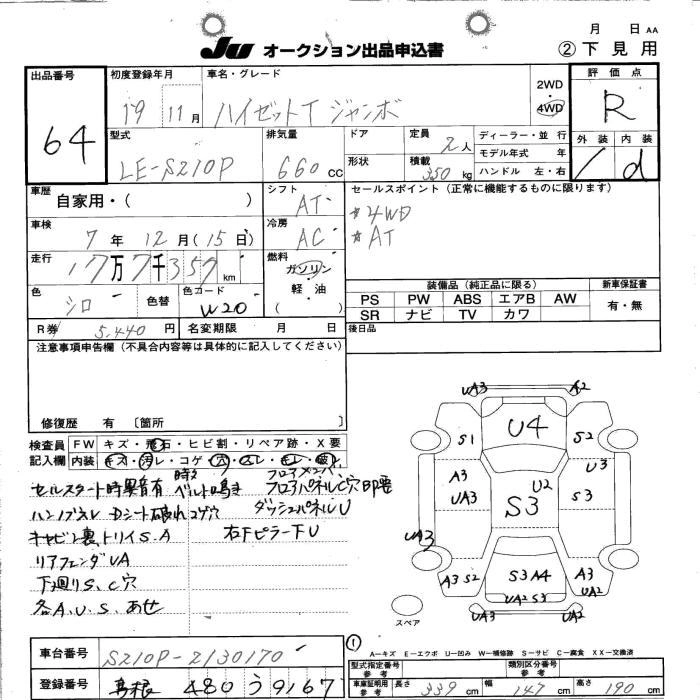 月 日 AA
JU オークション出品申込書 ② 下見用
出品番号 初度登録年月 車名・グレード 評価点
64 19 11月 ハイゼットT ジャンボ 2WD・4WD R
型式 排気量 ドア 定員 2人 ディーラー・並行 外装 内装
LE-S210P 660cc 形状 積載 350kg モデル年式 年 / d
ハンドル 左・右
車歴 自家用・( ) シフト AT セールスポイント (正常に機能するものに限ります)
車検 7年 12月 (15日) 冷房 AC *4WD
*AT
走行 17万7千357km 燃料 ガソリン・軽油 ( )
装備品 (純正品に限る) 新車保証書
PS PW ABS エアB AW 有・無
SR ナビ TV カワ
色 シロ 色替 色コード W20
後日品
R券 5,440円 名変期限 月 日
注意事項申告欄 (不具合内容等は具体的に記入してください)
修復歴 有 〔箇所 〕
検査員記入欄 FW キズ・飛石・ヒビ割・リペア跡・X要
内装 キズ・汚レ・コゲ・穴・スレ・キレ・破レ
セルスタート時異音有 時々ベルト鳴き フロアメンバ
フロアパネルC穴 即要
ハンドルスレ Dシート破れコゲ穴 ダッシュパネルU
キャビン裏トリイS.A 右下ピラー下U
リアフェンダUA
下廻りS、C穴
各A.U.S.あせ
UA3 A2
S1 U4 S2
A3 UA3 U2 U3 S3
S3
UA3
A3 S2 S3 A4 A3
UA2 S3 UA2
UA3 UA2
スペア
①
A－キズ E－エクボ U－凹み W－補修跡 S－サビ C－腐食 XX－交換済
車台番号 S210P-2130170 型式指定番号 参考 類別区分番号 参考
登録番号 島根 480 う 9167 車庫証明用 参考 長さ 339cm 幅 147cm 高さ 190cm